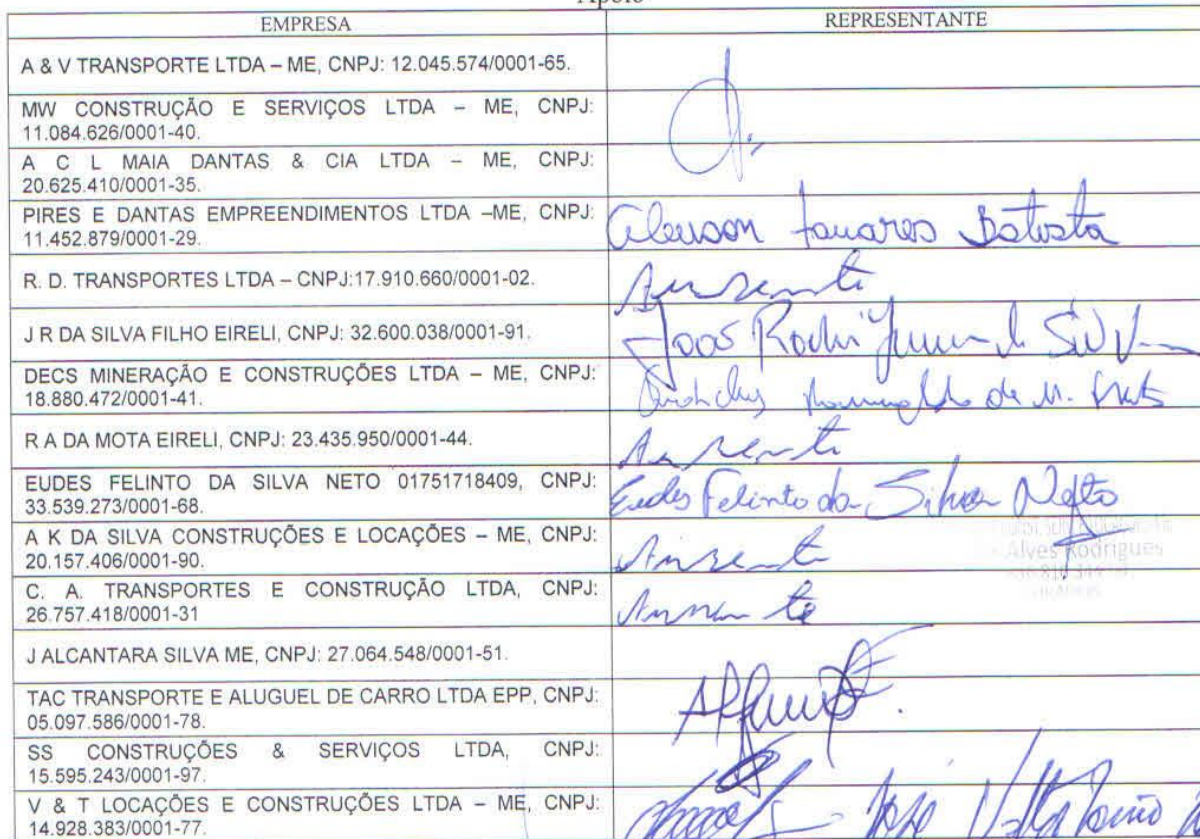 Apoio
EMPRESA
REPRESENTANTE
A & V TRANSPORTE LTDA – ME, CNPJ: 12.045.574/0001-65.
MW CONSTRUÇÃO E SERVIÇOS LTDA – ME, CNPJ:
11.084.626/0001-40.
A C L MAIA DANTAS & CIA LTDA – ME, CNPJ:
20.625.410/0001-35.
PIRES E DANTAS EMPREENDIMENTOS LTDA –ME, CNPJ:
11.452.879/0001-29.
Tavares Batista
R. D. TRANSPORTES LTDA – CNPJ:17.910.660/0001-02.
Ausente
J R DA SILVA FILHO EIRELI, CNPJ: 32.600.038/0001-91.
DECS MINERAÇÃO E CONSTRUÇÕES LTDA – ME, CNPJ:
18.880.472/0001-41.
R A DA MOTA EIRELI, CNPJ: 23.435.950/0001-44.
Ausente
EUDES FELINTO DA SILVA NETO 01751718409, CNPJ:
33.539.273/0001-68.
Eudes Felinto da Silva Neto
A K DA SILVA CONSTRUÇÕES E LOCAÇÕES – ME, CNPJ:
20.157.406/0001-90.
Ausente
Alves Rodrigues
C. A. TRANSPORTES E CONSTRUÇÃO LTDA, CNPJ:
26.757.418/0001-31
Ausente
J ALCANTARA SILVA ME, CNPJ: 27.064.548/0001-51.
TAC TRANSPORTE E ALUGUEL DE CARRO LTDA EPP, CNPJ:
05.097.586/0001-78.
SS CONSTRUÇÕES & SERVIÇOS LTDA, CNPJ:
15.595.243/0001-97.
V & T LOCAÇÕES E CONSTRUÇÕES LTDA – ME, CNPJ:
14.928.383/0001-77.